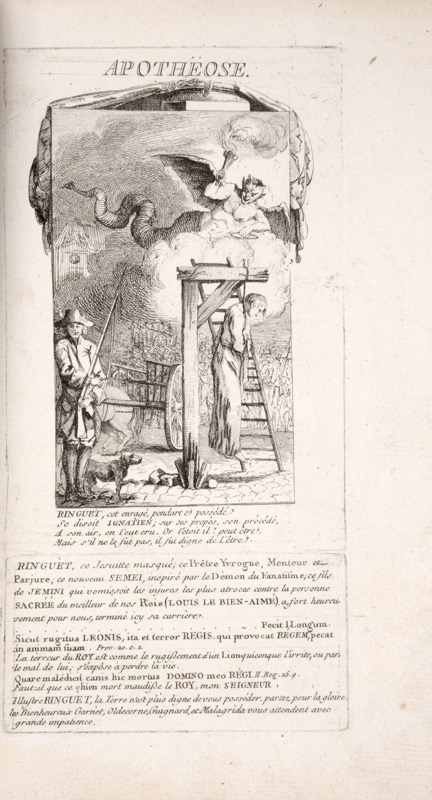 APOTHEOSE.
RINGUET, cet enragé, pendart et possédé
Se disoit IGNATIEN; sur ses propos, son procédé,
A son air, on l'eut cru. Or l'étoit il? peut être;
Mais s'il ne le fut pas, il fut digne de l'être.
RINGUET, ce Jesuitte masqué; ce Prêtre Yvrogne, Menteur et
Parjure; ce nouveau SEMEI, inspiré par le Démon du Fanatisme; ce fils
de JEMINI qui vomissoit les injures les plus atroces contre la personne
SACRÉE du meilleur de nos Rois (LOUIS LE BIEN-AIME), a fort heureu
vement pour nous, terminé icy sa carriere.
Fecit J. Longum.
Sicut rugitus LEONIS, ita et terror REGIS. qui provocat REGEM, pecat
in animam suam. Prov. 20. v. 2.
La terreur du ROY est comme le rugissement d'un Lion quiconque l'irrite, ou par
le mal de lui; s'expose à perdre la vie.
Quare maledicit canis hic morius DOMINO meo REGI. II. Reg. 16. 9.
Faut-il que ce chien mort maudisse le ROY, mon SEIGNEUR.
Illustre RINGUET, la Terre n'est plus digne de vous posséder, partez pour la gloire,
les Bienheureux Garnet, Oldecorne, Guignard, et Malagrida vous attendent avec
grande impatience.